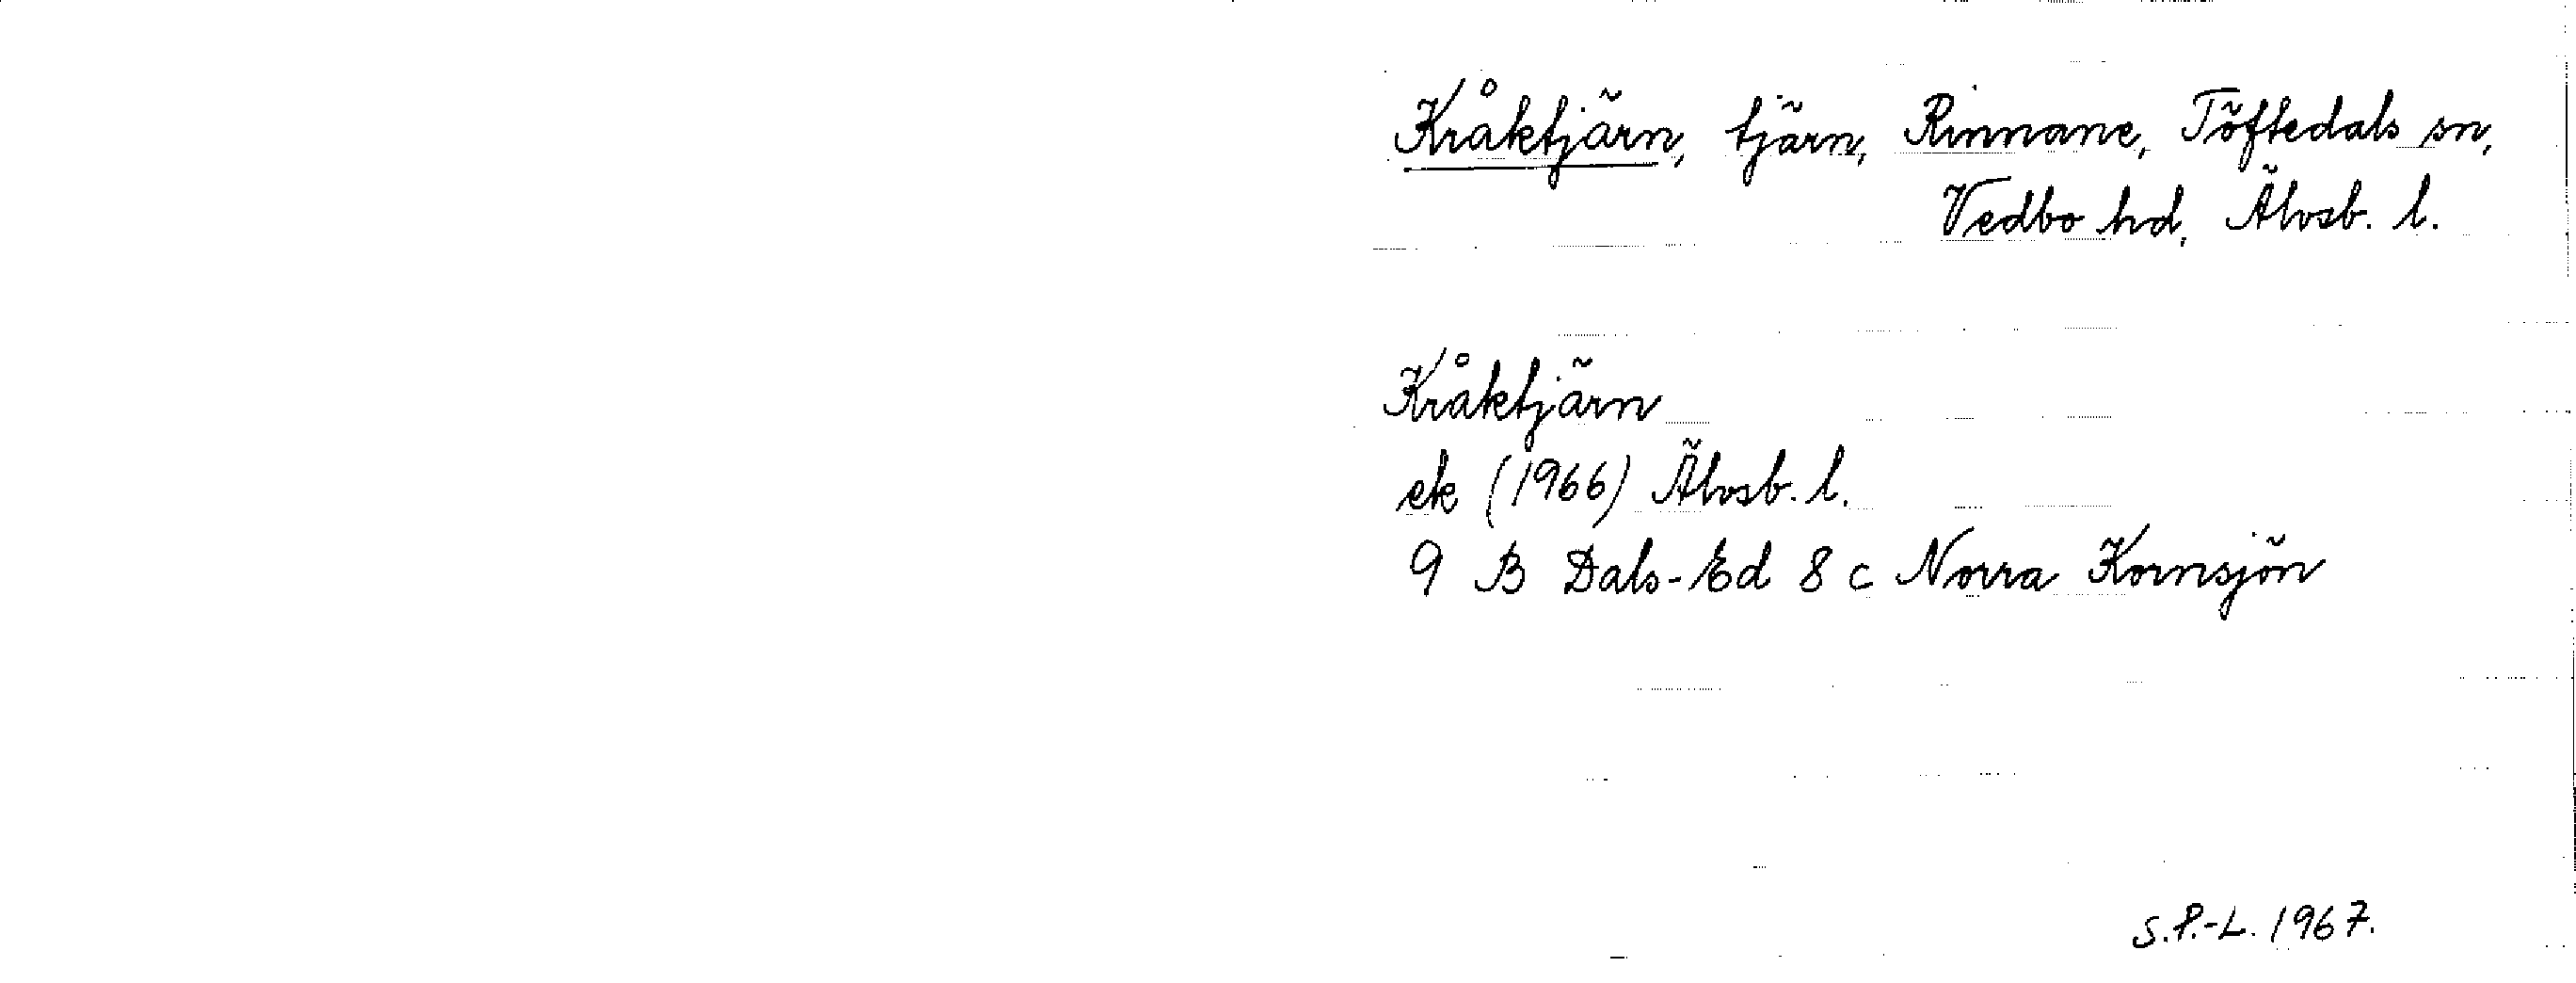 Kråktjärn, tjärn, Rinnane, Töftedals sn,
Vedbo hd, Älvsb. l.
Kråktjärn
ek (1966) Älvsb. l.
9 B Dals-Ed 8 c Norra Kornsjön
S.P.-L. 1967.